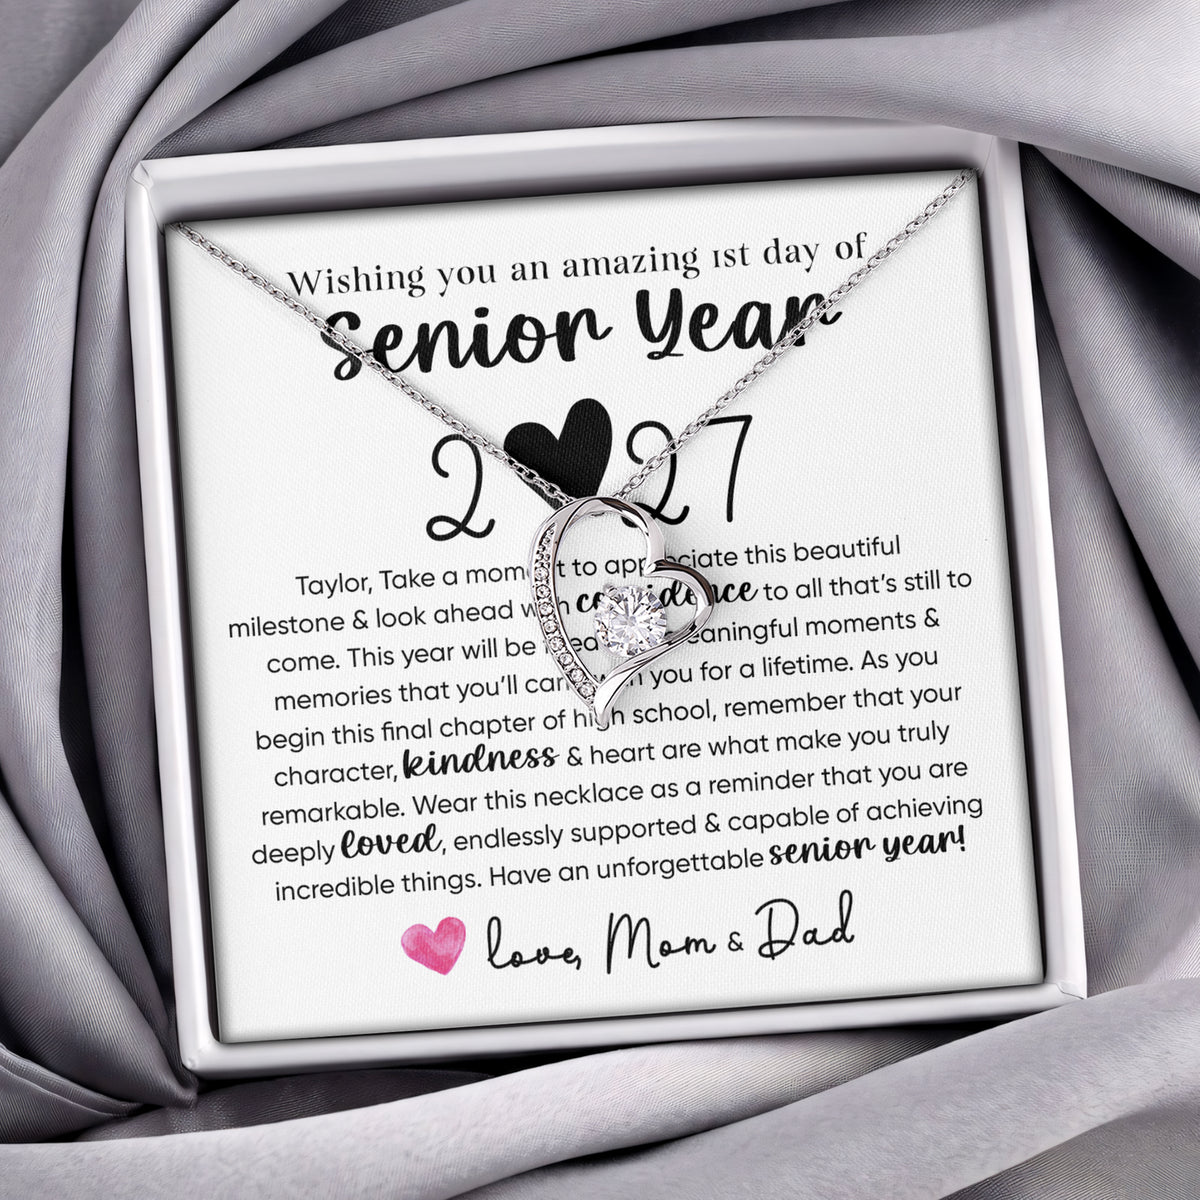 Wishing you an amazing 1st day of
Senior Year
2♥27
Taylor, Take a moment to appreciate this beautiful
milestone & look ahead with confidence to all that's still to
come. This year will be filled with meaningful moments &
memories that you'll carry with you for a lifetime. As you
begin this final chapter of high school, remember that your
character, kindness & heart are what make you truly
remarkable. Wear this necklace as a reminder that you are
deeply loved, endlessly supported & capable of achieving
incredible things. Have an unforgettable senior year!
love, Mom & Dad